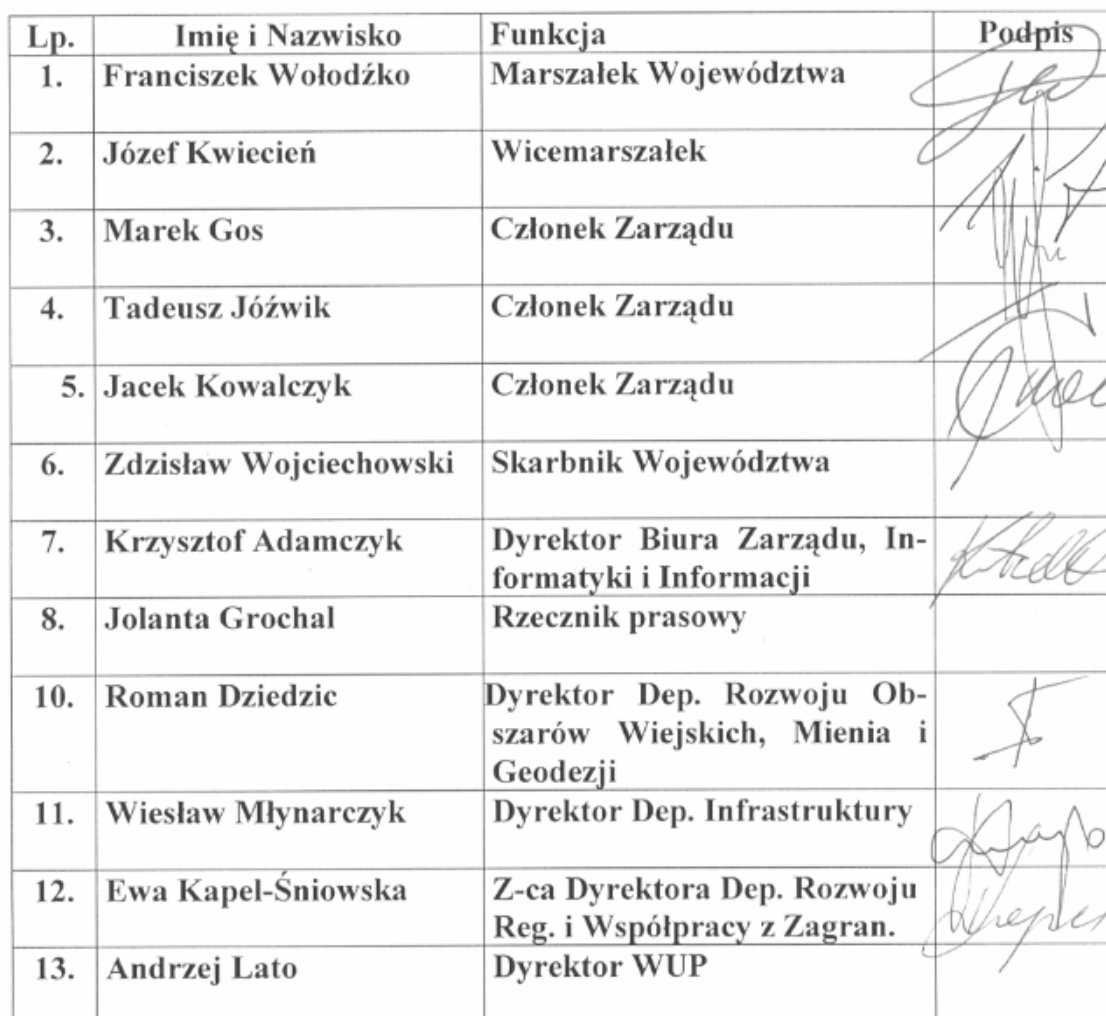 Lp. Imię i Nazwisko Funkcja Podpis
1. Franciszek Wołodźko Marszałek Województwa
2. Józef Kwiecień Wicemarszałek
3. Marek Gos Członek Zarządu
4. Tadeusz Jóźwik Członek Zarządu
5. Jacek Kowalczyk Członek Zarządu
6. Zdzisław Wojciechowski Skarbnik Województwa
7. Krzysztof Adamczyk Dyrektor Biura Zarządu, In-
formatyki i Informacji
8. Jolanta Grochal Rzecznik prasowy
10. Roman Dziedzic Dyrektor Dep. Rozwoju Ob-
szarów Wiejskich, Mienia i
Geodezji
11. Wiesław Młynarczyk Dyrektor Dep. Infrastruktury
12. Ewa Kapel-Śniowska Z-ca Dyrektora Dep. Rozwoju
Reg. i Współpracy z Zagran.
13. Andrzej Lato Dyrektor WUP